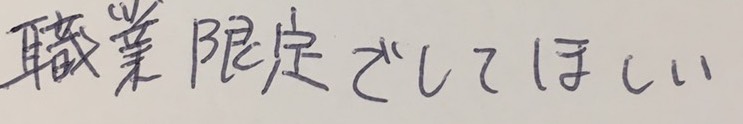 職業限定でしてほしい